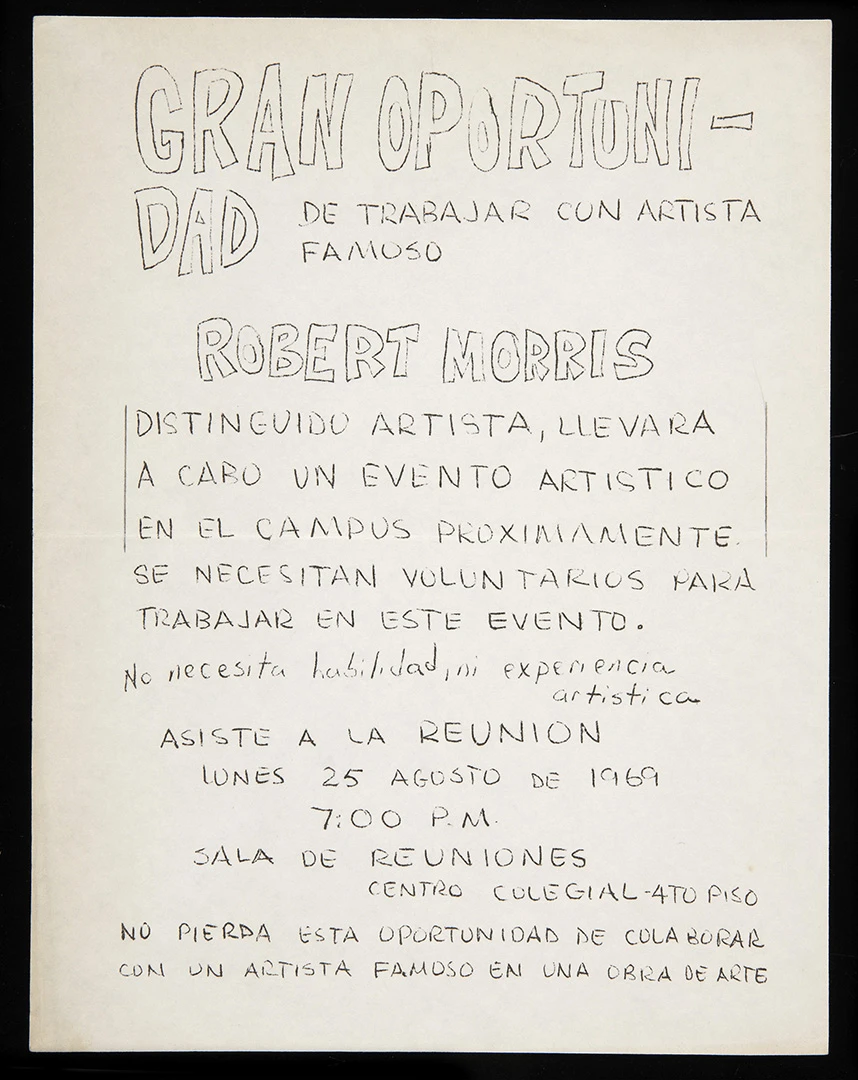 GRAN OPORTUNI-
DAD DE TRABAJAR CON ARTISTA
FAMOSO
ROBERT MORRIS
DISTINGUIDO ARTISTA, LLEVARA
A CABO UN EVENTO ARTISTICO
EN EL CAMPUS PROXIMAMENTE.
SE NECESITAN VOLUNTARIOS PARA
TRABAJAR EN ESTE EVENTO.
No necesita habilidad, ni experiencia
artistica
ASISTE A LA REUNION
LUNES 25 AGOSTO DE 1969
7:00 P.M.
SALA DE REUNIONES
CENTRO COLEGIAL-4TO PISO
NO PIERDA ESTA OPORTUNIDAD DE COLABORAR
CON UN ARTISTA FAMOSO EN UNA OBRA DE ARTE